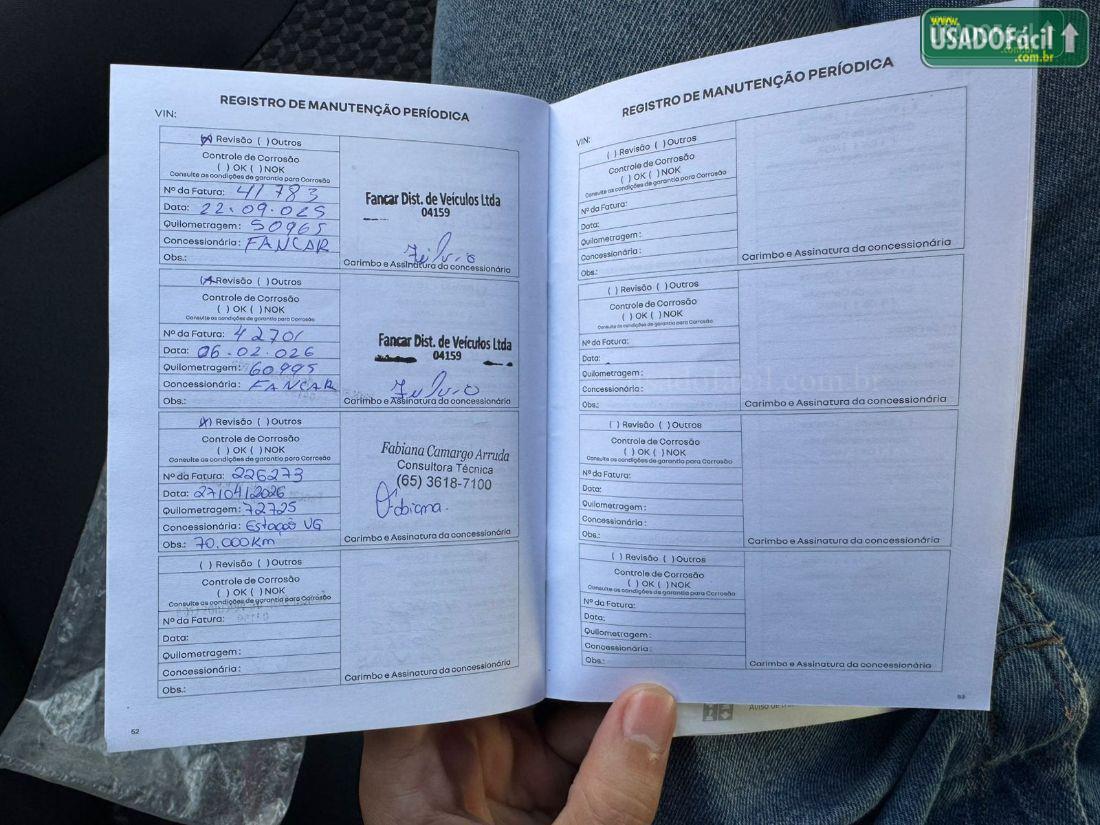 www.
USADOFácil
.com.br
REGISTRO DE MANUTENÇÃO PERÍODICA
VIN:
(X) Revisão ( ) Outros
Controle de Corrosão
( ) OK ( ) NOK
Consulte as condições de garantia para Corrosão
Nº da Fatura: 41783
Data: 22.09.025
Quilometragem: 50965
Concessionária: FANCAR
Obs.:
Fancar Dist. de Veículos Ltda
04159
Carimbo e Assinatura da concessionária
(X) Revisão ( ) Outros
Controle de Corrosão
( ) OK ( ) NOK
Consulte as condições de garantia para Corrosão
Nº da Fatura: 42701
Data: 06.02.026
Quilometragem: 60995
Concessionária: FANCAR
Obs.:
Fancar Dist. de Veículos Ltda
04159
Carimbo e Assinatura da concessionária
(X) Revisão ( ) Outros
Controle de Corrosão
( ) OK ( ) NOK
Consulte as condições de garantia para Corrosão
Nº da Fatura: 226273
Data: 27/04/2026
Quilometragem: 72725
Concessionária: Estação VG
Obs.: 70.000Km
Fabiana Camargo Arruda
Consultora Técnica
(65) 3618-7100
Fabiana.
Carimbo e Assinatura da concessionária
( ) Revisão ( ) Outros
Controle de Corrosão
( ) OK ( ) NOK
Consulte as condições de garantia para Corrosão
Nº da Fatura:
Data:
Quilometragem:
Concessionária:
Obs.:
Carimbo e Assinatura da concessionária
52
REGISTRO DE MANUTENÇÃO PERÍODICA
VIN:
( ) Revisão ( ) Outros
Controle de Corrosão
( ) OK ( ) NOK
Consulte as condições de garantia para Corrosão
Nº da Fatura:
Data:
Quilometragem:
Concessionária:
Obs.:
Carimbo e Assinatura da concessionária
( ) Revisão ( ) Outros
Controle de Corrosão
( ) OK ( ) NOK
Consulte as condições de garantia para Corrosão
Nº da Fatura:
Data:
Quilometragem:
Concessionária:
Obs.:
Carimbo e Assinatura da concessionária
( ) Revisão ( ) Outros
Controle de Corrosão
( ) OK ( ) NOK
Consulte as condições de garantia para Corrosão
Nº da Fatura:
Data:
Quilometragem:
Concessionária:
Obs.:
Carimbo e Assinatura da concessionária
( ) Revisão ( ) Outros
Controle de Corrosão
( ) OK ( ) NOK
Consulte as condições de garantia para Corrosão
Nº da Fatura:
Data:
Quilometragem:
Concessionária:
Obs.:
Carimbo e Assinatura da concessionária
53